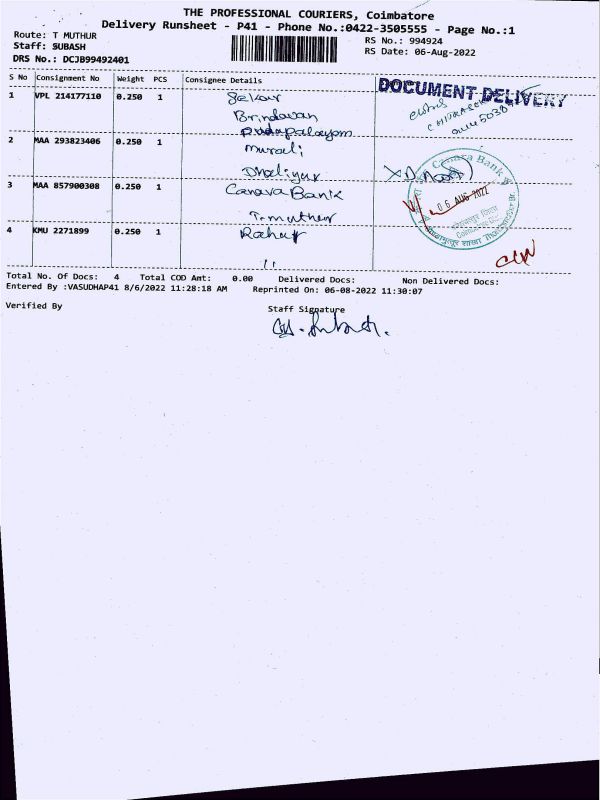 THE PROFESSIONAL COURIERS, Coimbatore
Delivery Runsheet - P41 - Phone No.:0422-3505555 - Page No.:1
Route: T MUTHUR
RS No.: 994924
Staff: SUBASH
RS Date: 06-Aug-2022
DRS No.: DCJB99492401
S No Consignment No Weight PCS Consignee Details
DOCUMENT DELIVERY
1 VPL 214177110 0.250 1
Brindavan
2 MAA 293823406 0.250 1 murali
Dhaliyur
3 MAA 857900308 0.250 1 Canara Bank
T.muthur
Canara Bank
06 AUG 2022
4 KMU 2271899 0.250 1
Total No. Of Docs: 4 Total COD Amt: 0.00 Delivered Docs: Non Delivered Docs:
Entered By :VASUDHAP41 8/6/2022 11:28:18 AM Reprinted On: 06-08-2022 11:30:07
Verified By Staff Signature